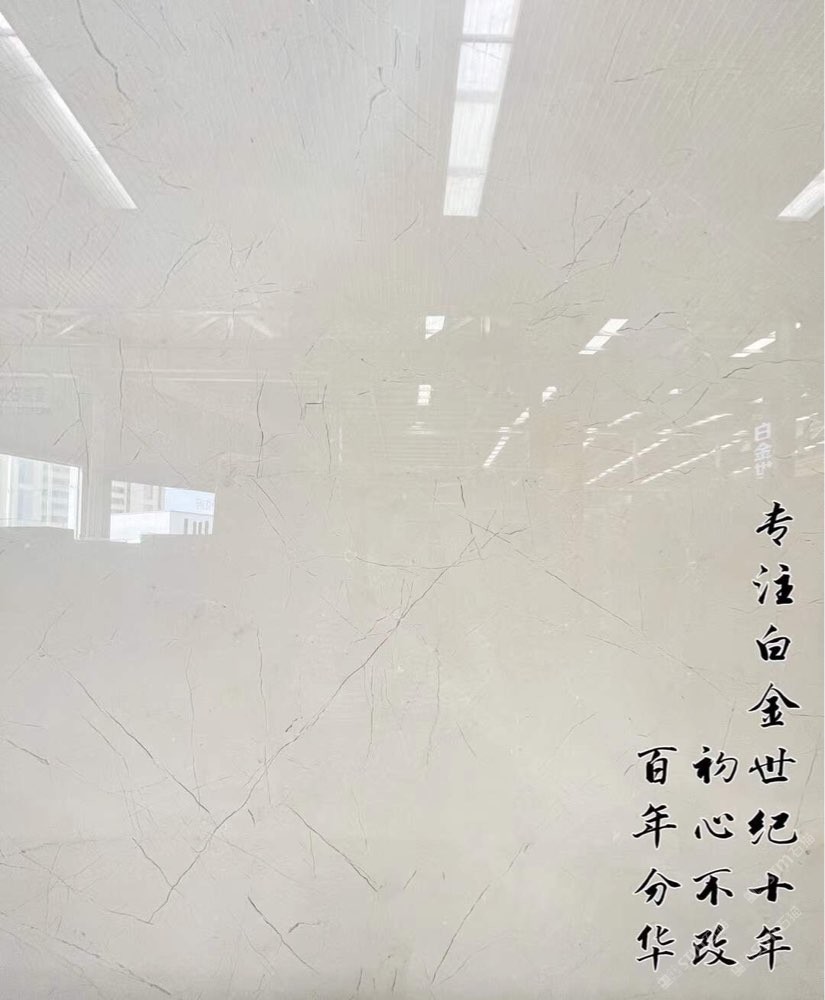 专注白金世纪十年
初心不改
百年分华
白金世